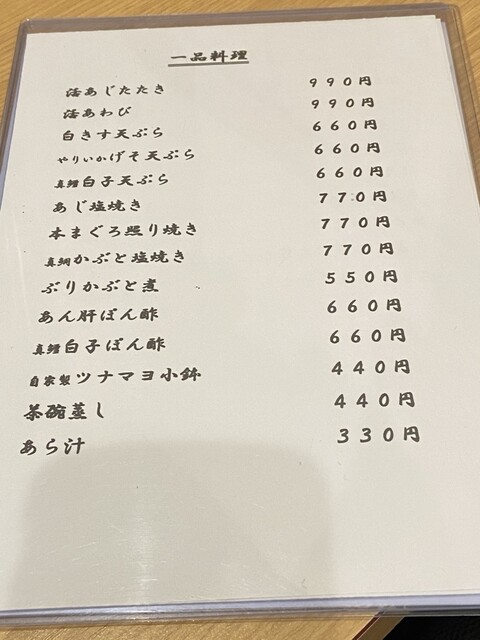 一品料理
活あじたたき 990円
活あわび 990円
白きす天ぷら 660円
やりいかげそ天ぷら 660円
真鱈白子天ぷら 660円
あじ塩焼き 770円
本まぐろ照り焼き 770円
真鯛かぶと塩焼き 770円
ぶりかぶと煮 550円
あん肝ぽん酢 660円
真鱈白子ぽん酢 660円
自家製ツナマヨ小鉢 440円
茶碗蒸し 440円
あら汁 330円